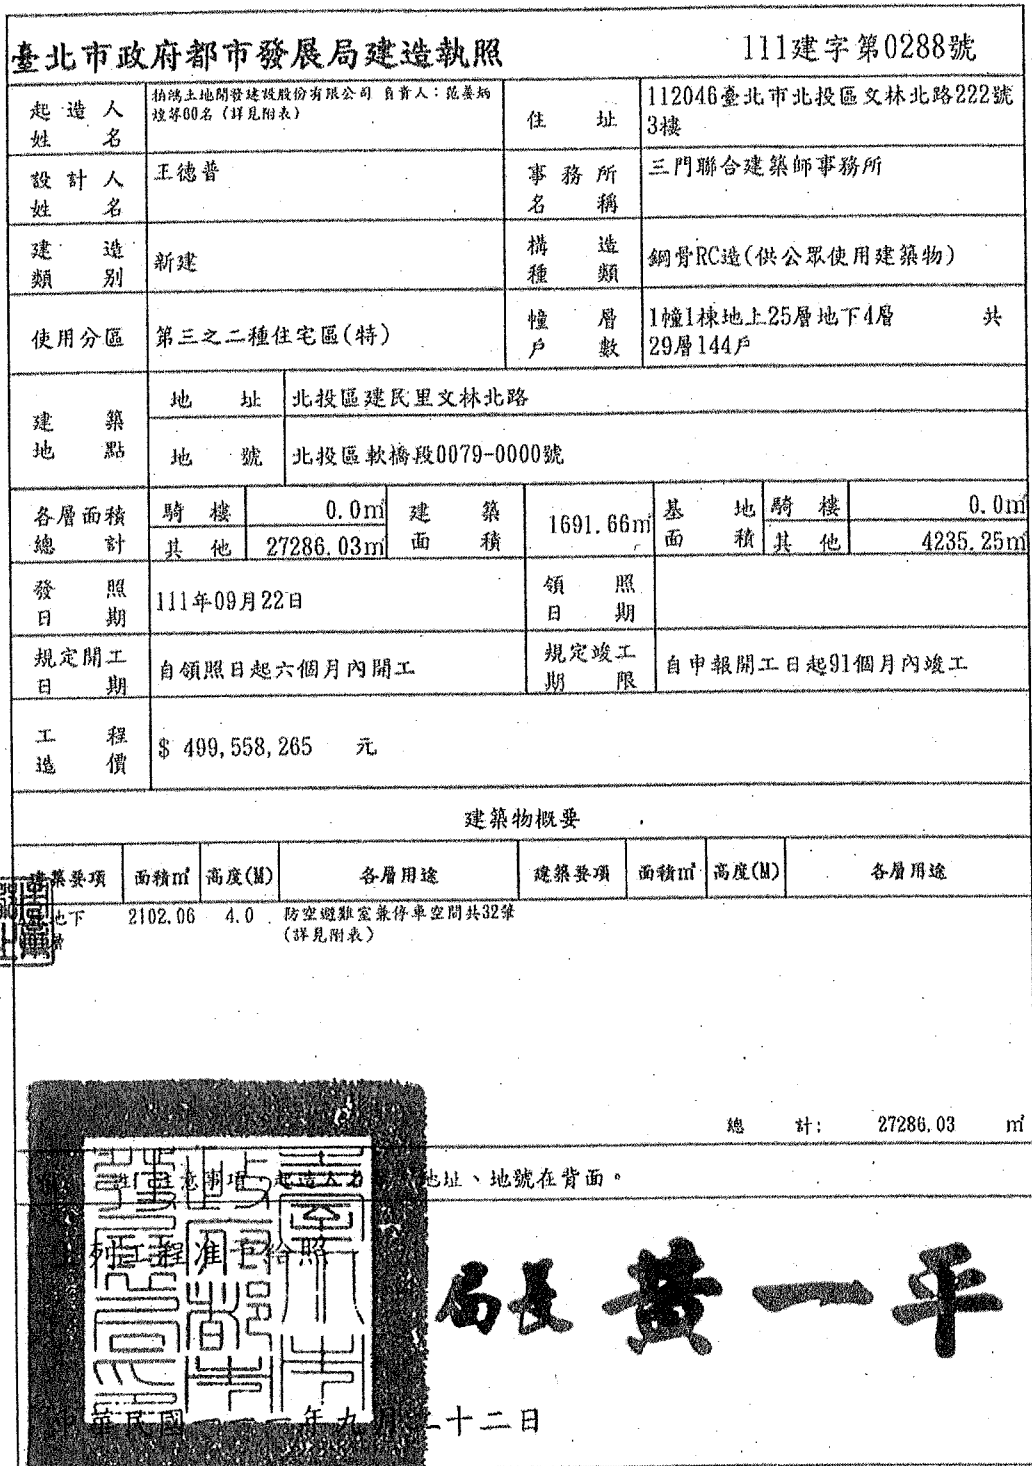 臺北市政府都市發展局建造執照 111建字第0288號
起造人姓名 柏鴻土地開發建設股份有限公司 負責人：范姜炳煌等60名（詳見附表）
住址 112046臺北市北投區文林北路222號3樓
設計人姓名 王德普
事務所名稱 三門聯合建築師事務所
建造類別 新建
構造種類 鋼骨RC造(供公眾使用建築物)
使用分區 第三之二種住宅區(特)
幢層戶數 1幢1棟地上25層地下4層 共29層144戶
建築地點 地址 北投區建民里文林北路
地號 北投區軟橋段0079-0000號
各層面積總計 騎樓 0.0㎡ 其他 27286.03㎡
建築面積 1691.66㎡
基地面積 騎樓 0.0㎡ 其他 4235.25㎡
發照日期 111年09月22日
領照日期
規定開工日期 自領照日起六個月內開工
規定竣工期限 自申報開工日起91個月內竣工
工程造價 $ 499,558,265 元
建築物概要
建築要項 面積㎡ 高度(M) 各層用途 建築要項 面積㎡ 高度(M) 各層用途
地下 2102.06 4.0 防空避難室兼停車空間共32筆
層 (詳見附表)
總計: 27286.03 ㎡
注意事項、起造人名 地址、地號在背面。
列工程准予給照
局長 黃一平
中華民國一一一年九月二十二日